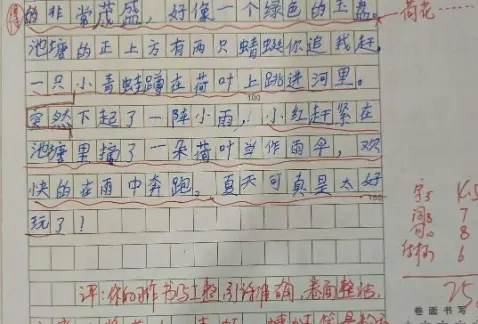 的非常茂盛，好像一个绿色的玉盘。
荷花……
池塘的正上方有两只蜻蜓你追我赶，
一只小青蛙蹲在荷叶上跳进河里。
100
突然下起了一阵小雨，小红赶紧在
池塘里摘了一朵荷叶当作雨伞，欢
快的在雨中奔跑。夏天可真是太好
150
玩了！
7
8
6
25
评：你的书写工整，用词准确，卷面整洁，
卷面书写